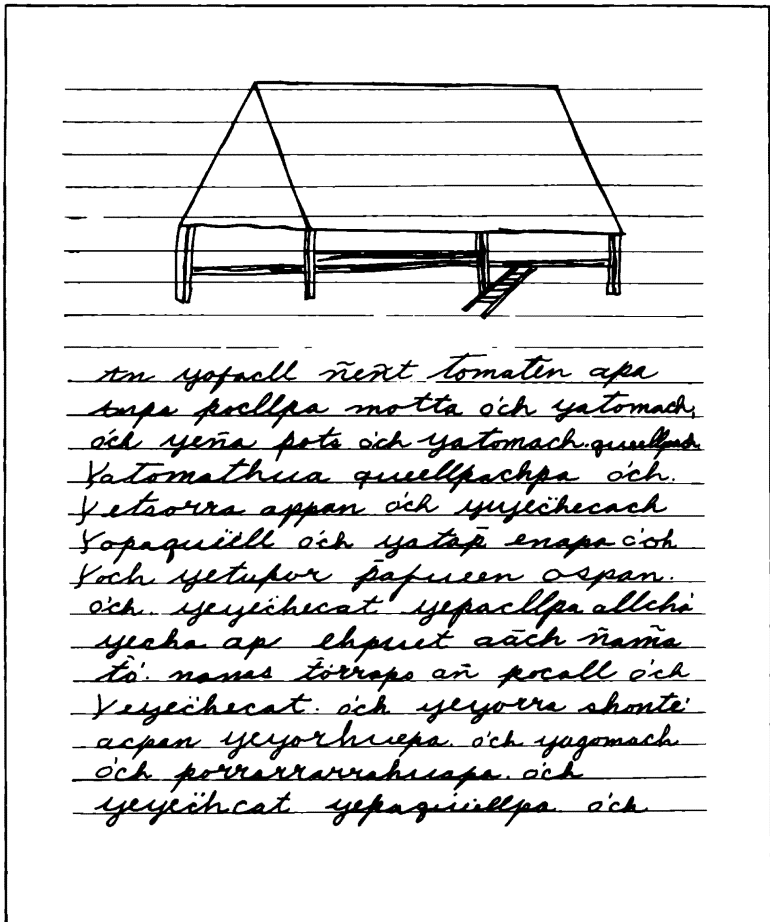 An yofacll ñeñt tomaten apa
anpa pocllpa motta óch yatomach,
óch yeña pots óch yatomach. queellpach
Yatomathua queellpachpa óch.
Yetsorra appan óch yuyechecach
Yopaquëll óch yatap̃ enapa óch
Yoch yetupor p̃apueen ospan.
óch. yeyechecat yepacllpa allchá
yecha ap ehpuet aãch ñam̃a
to. nanas torraps añ pocall óch
Yeyechecat. óch yeyorra shonté
acpan yeyorhuepa. óch yagomach
óch porrarrarrahuapa. óch
yeyechcat yepaquëllpa. óch